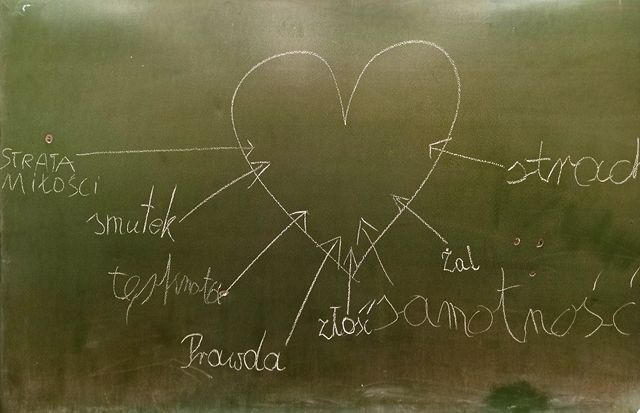 STRATA
MIŁOŚCI
smutek
tęsknota
Prawda
złość
samotność
żal
strach